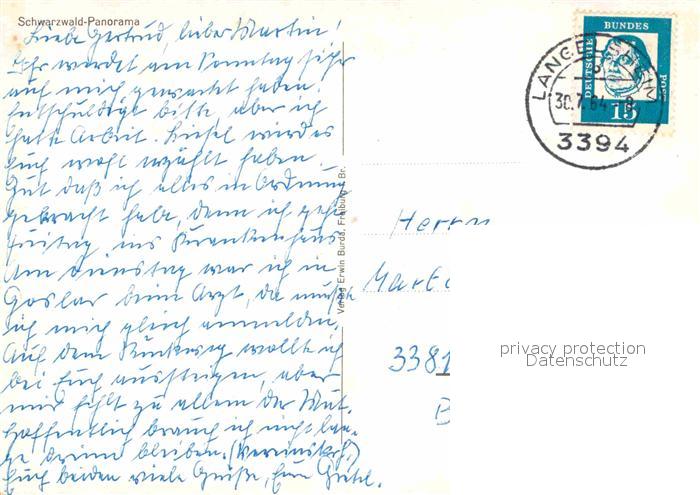 Schwarzwald-Panorama
Liebe Gertrud, lieber Martin!
Ihr werdet am Sonntag sicher
auf mich gewartet haben.
Entschuldigt bitte, aber ich
hatte Arbeit. Liesel wird es
Euch wohl erzählt haben.
Gut daß ich alles in Ordnung
gebracht habe, denn ich gehe
Freitag ins Krankenhaus
Am Dienstag war ich in
Goslar beim Arzt, da mußte
ich mich gleich anmelden.
Auf dem Rückweg wollte ich
bei Euch aussteigen, aber
mir fehlt zu allem der Mut.
Hoffentlich brauch ich nicht lan-
ge drinn bleiben. (Vereinskrh.)
Euch beiden viele Grüße, Eure Gretel.
Verlag Erwin Burda, Freiburg i. Br.
DEUTSCHE BUNDESPOST
15
30.7.64 - 8
3394
Herrn
Martin
3381
B
privacy protection
Datenschutz